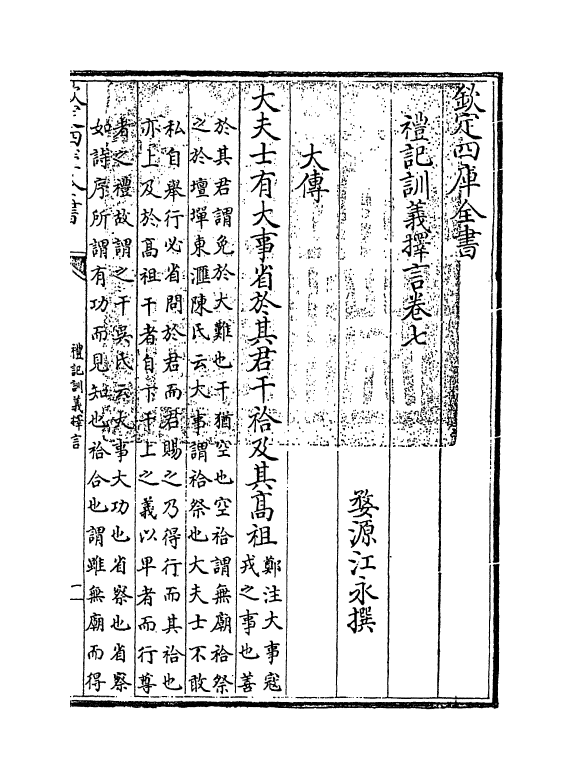 欽定四庫全書
禮記訓義擇言卷七
婺源江永撰
大傳
大夫士有大事省於其君干祫及其髙祖
鄭注大事冦
戎之事也善
於其君謂免於大難也干猶空也空祫謂無廟祫祭
之於壇墠東滙陳氏云大事謂祫祭也大夫士不敢
私自舉行必省問於君而君賜之乃得行而其祫也
亦上及於髙祖干者自下干上之義以卑者而行尊
者之禮故謂之干吳氏云大事大功也省察也省察
如詩序所謂有功而見知也祫合也謂雖無廟而得
欽定四庫全書
禮記訓義擇言
一